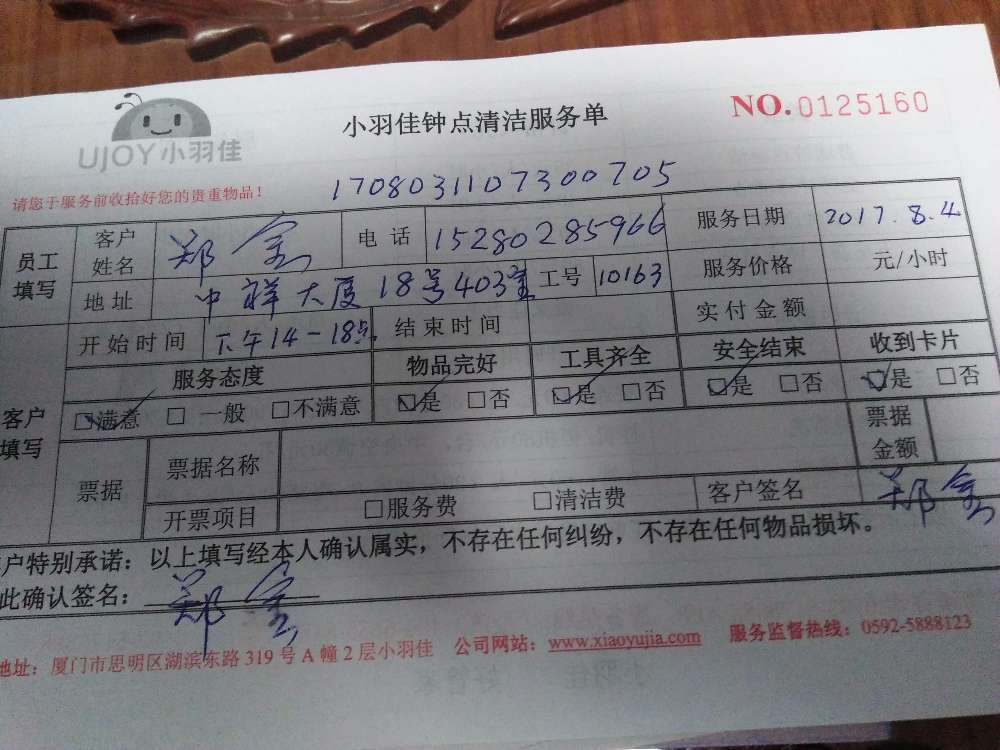 UJOY小羽佳
小羽佳钟点清洁服务单
NO.0125160
请您于服务前收拾好您的贵重物品！
1708031107300705
员工填写 客户姓名 郑金 电话 15280285966 服务日期 2017.8.4
地址 中祥大厦18号403室 工号 10163 服务价格 元/小时
开始时间 下午14-18点 结束时间 实付金额
客户填写 服务态度 物品完好 工具齐全 安全结束 收到卡片
☑满意 □一般 □不满意 ☑是 □否 ☑是 □否 ☑是 □否 ☑是 □否
票据 票据名称 票据金额
开票项目 □服务费 □清洁费 客户签名 郑金
户特别承诺：以上填写经本人确认属实，不存在任何纠纷，不存在任何物品损坏。
此确认签名：郑金
地址：厦门市思明区湖滨东路319号A幢2层小羽佳 公司网站：www.xiaoyujia.com 服务监督热线：0592-5888123